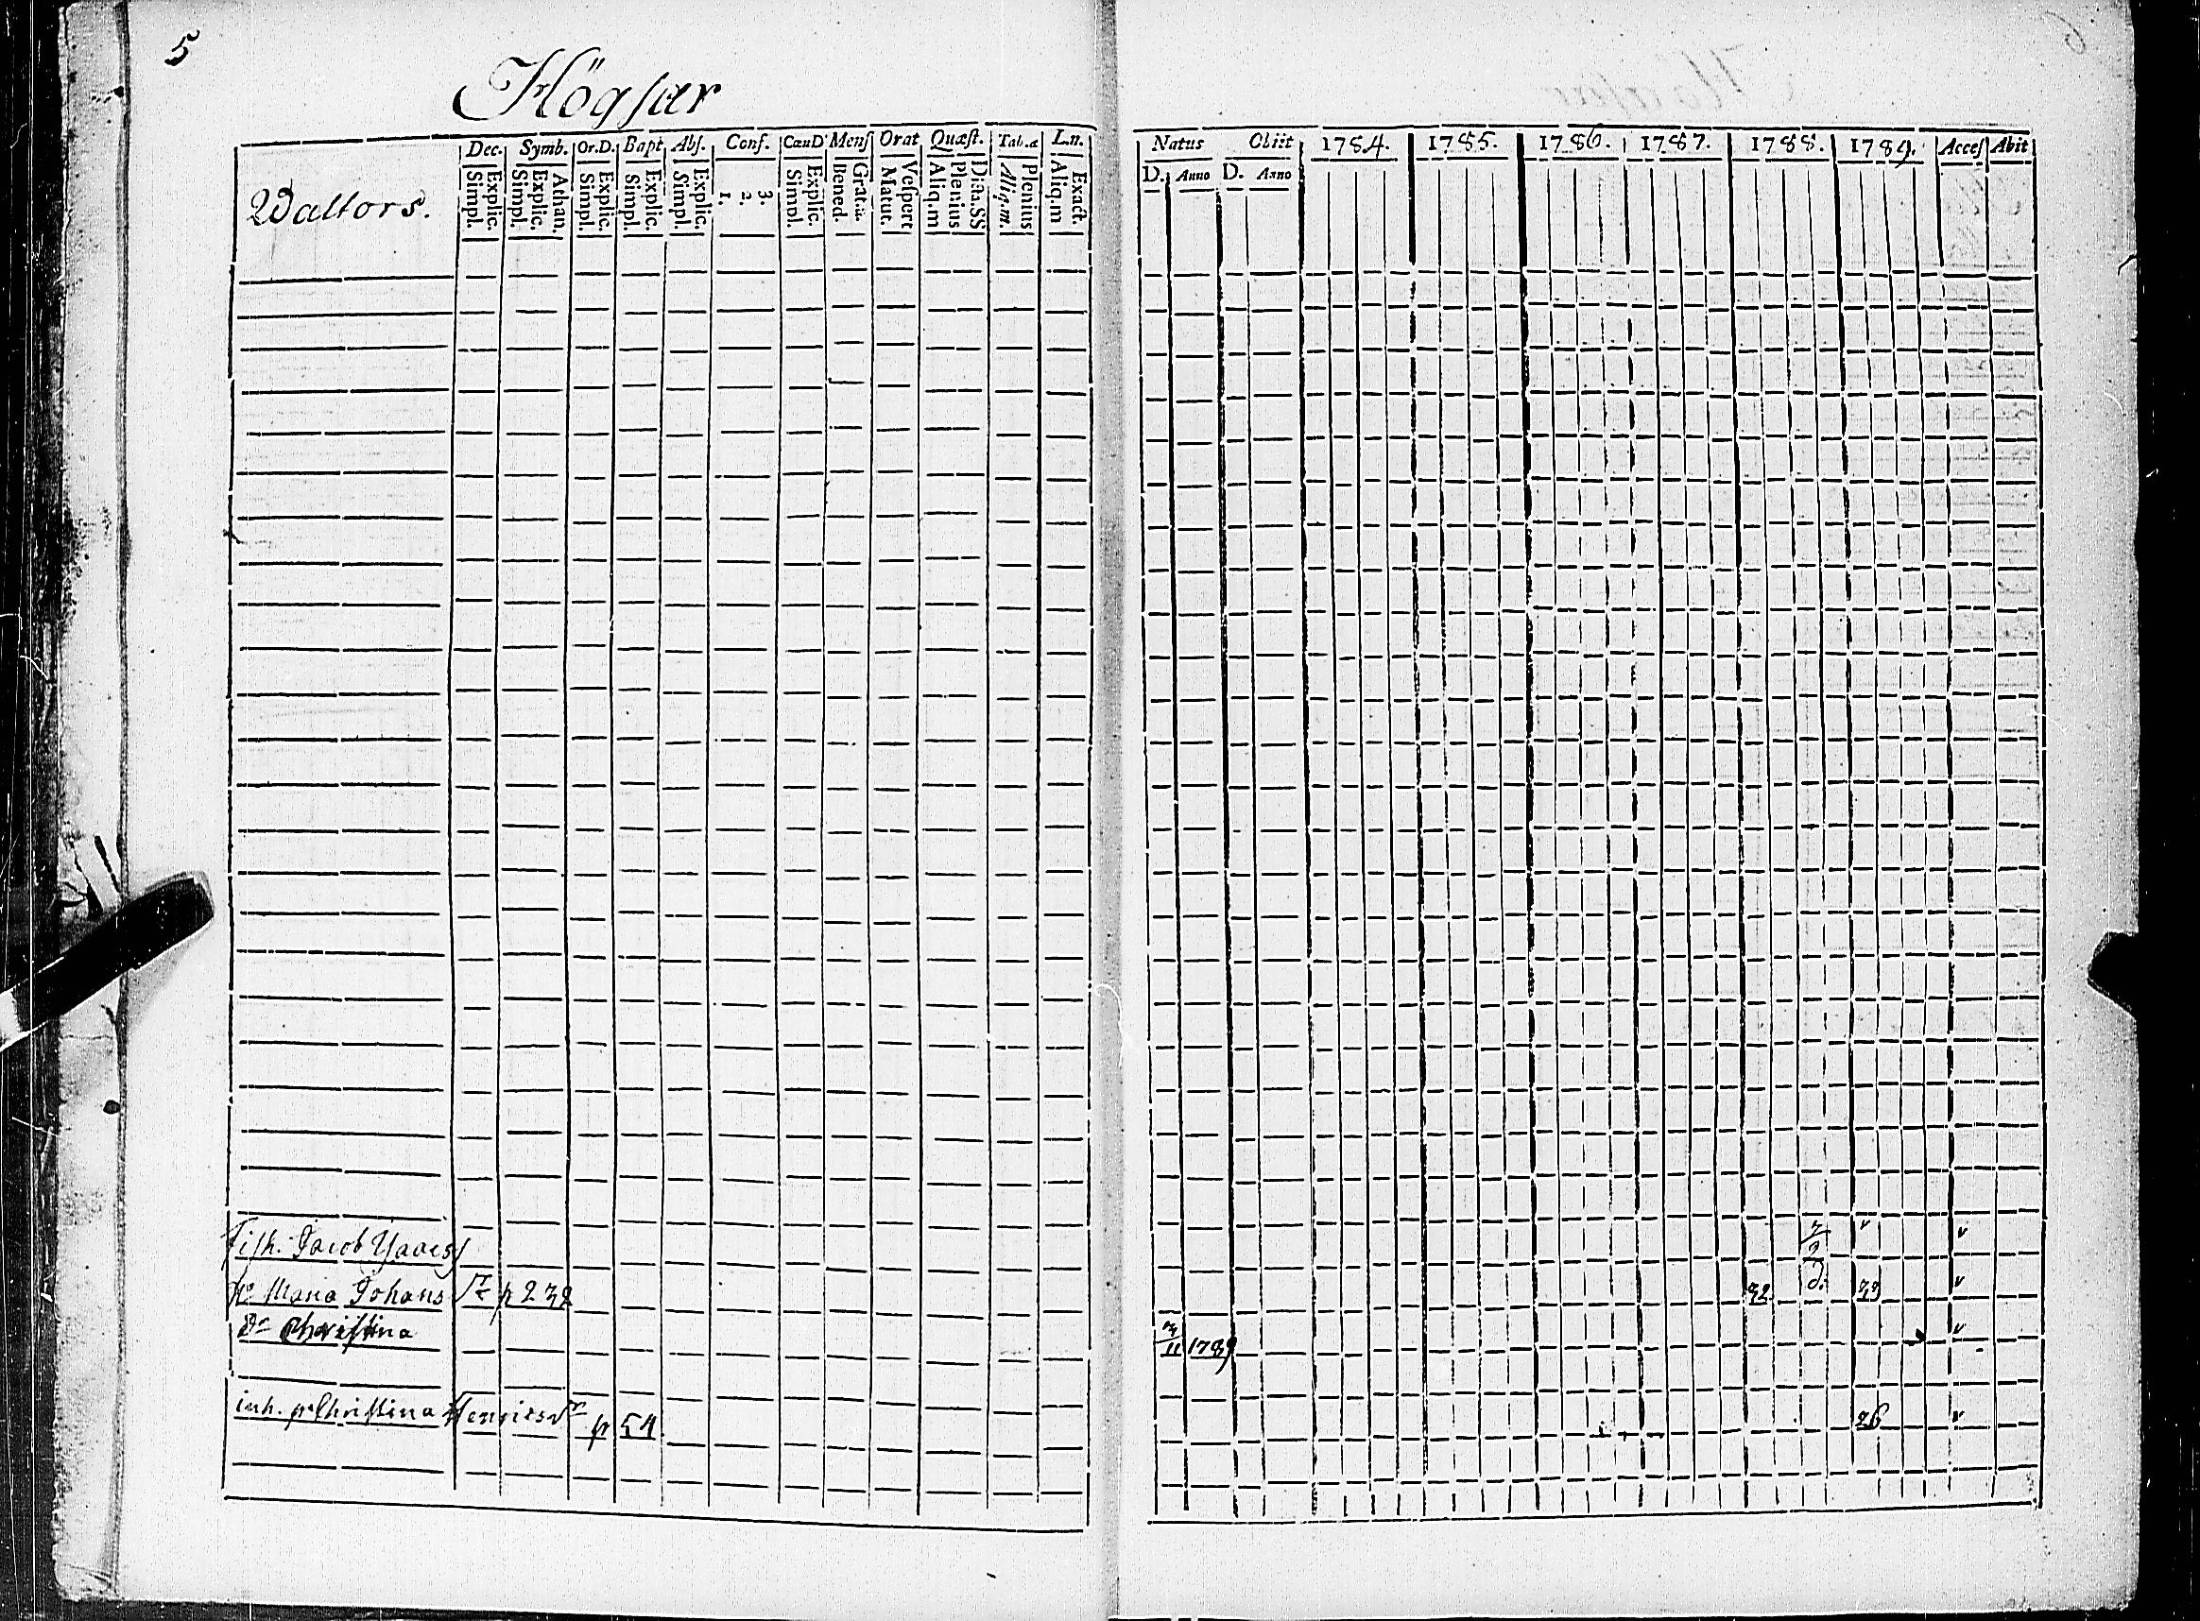 5
Högsar
Waltors.
Dec. Symb. Or.D. Bapt Abs. Conf. CænD Mens Orat Quæst. Tab.æ L.n.
Explic. Simpl. Athan. Explic. Simpl. Explic. Simpl. Explic. Simpl. Explic. Simpl. 3. 2. 1. Explic. Simpl. Grat.a. Bened. Vespert Matut. Dicta.SS Plenius Aliq.m Plenius Aliq.m. Exact. Aliq.m
Natus Obiit 1784. 1785. 1786. 1787. 1788. 1789. Acces Abit
D. Anno D. Anno
Fisk. Jacob
h: Maria Johans dr p 232 32 33
Dr Christina 11 1789
inh. p Christina Henricsdr p 54 26